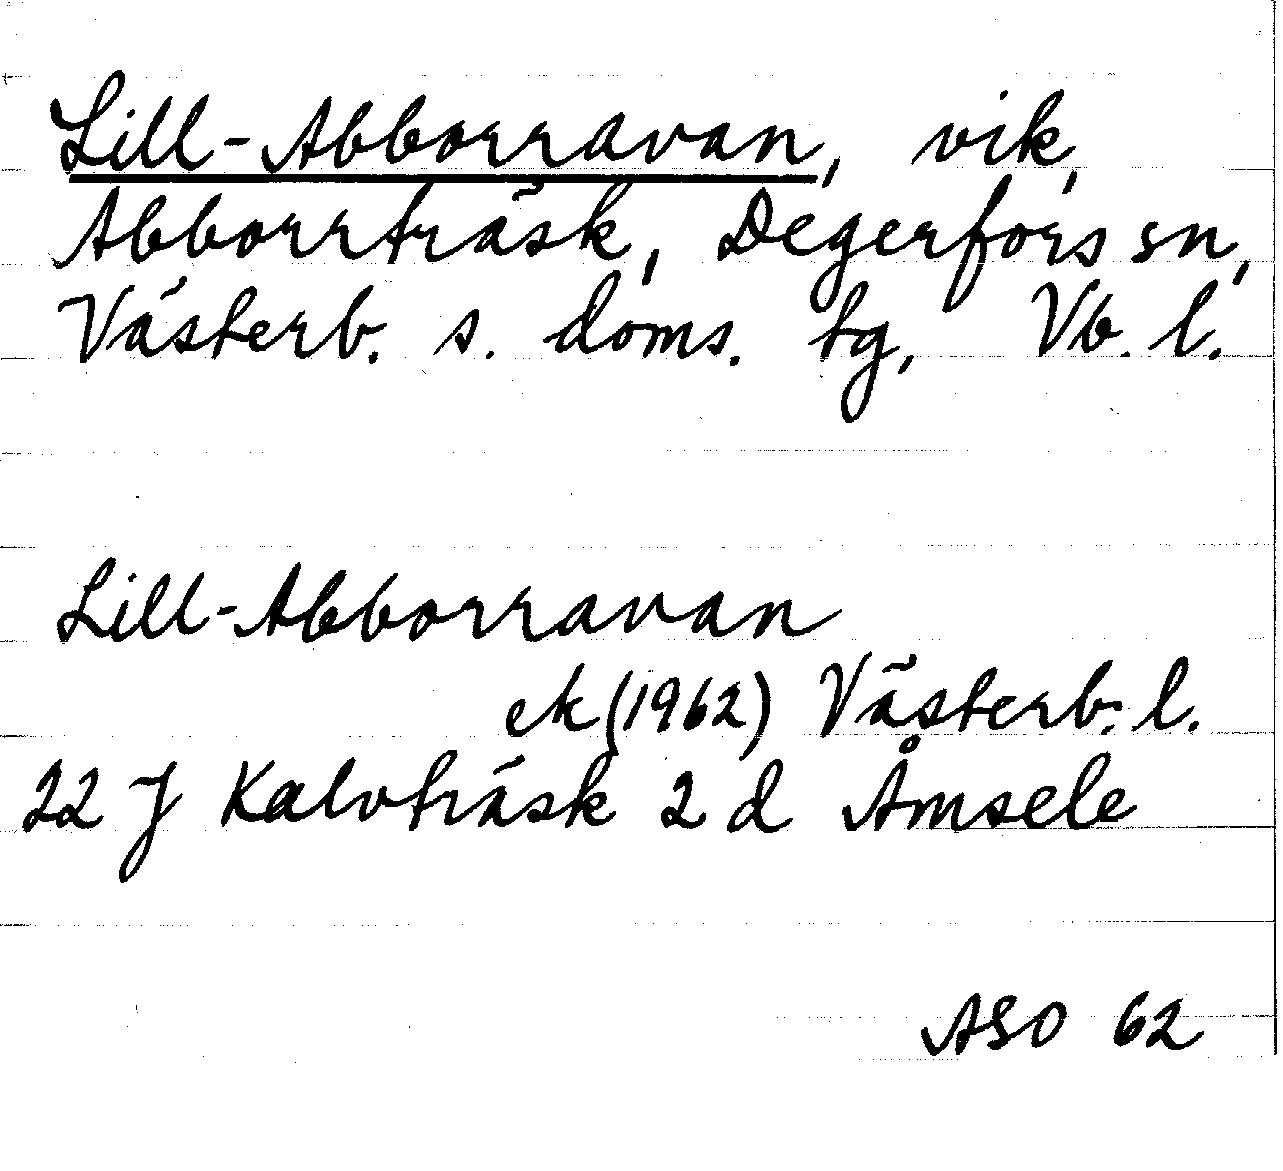 Lill-Abborravan, vik,
Abborrträsk, Degerfors sn,
Västerb. s. doms. tg, Vb. l.
Lill-Abborravan
ek (1962) Västerb. l.
22 J Kalvträsk 2 d Åmsele
ASO 62